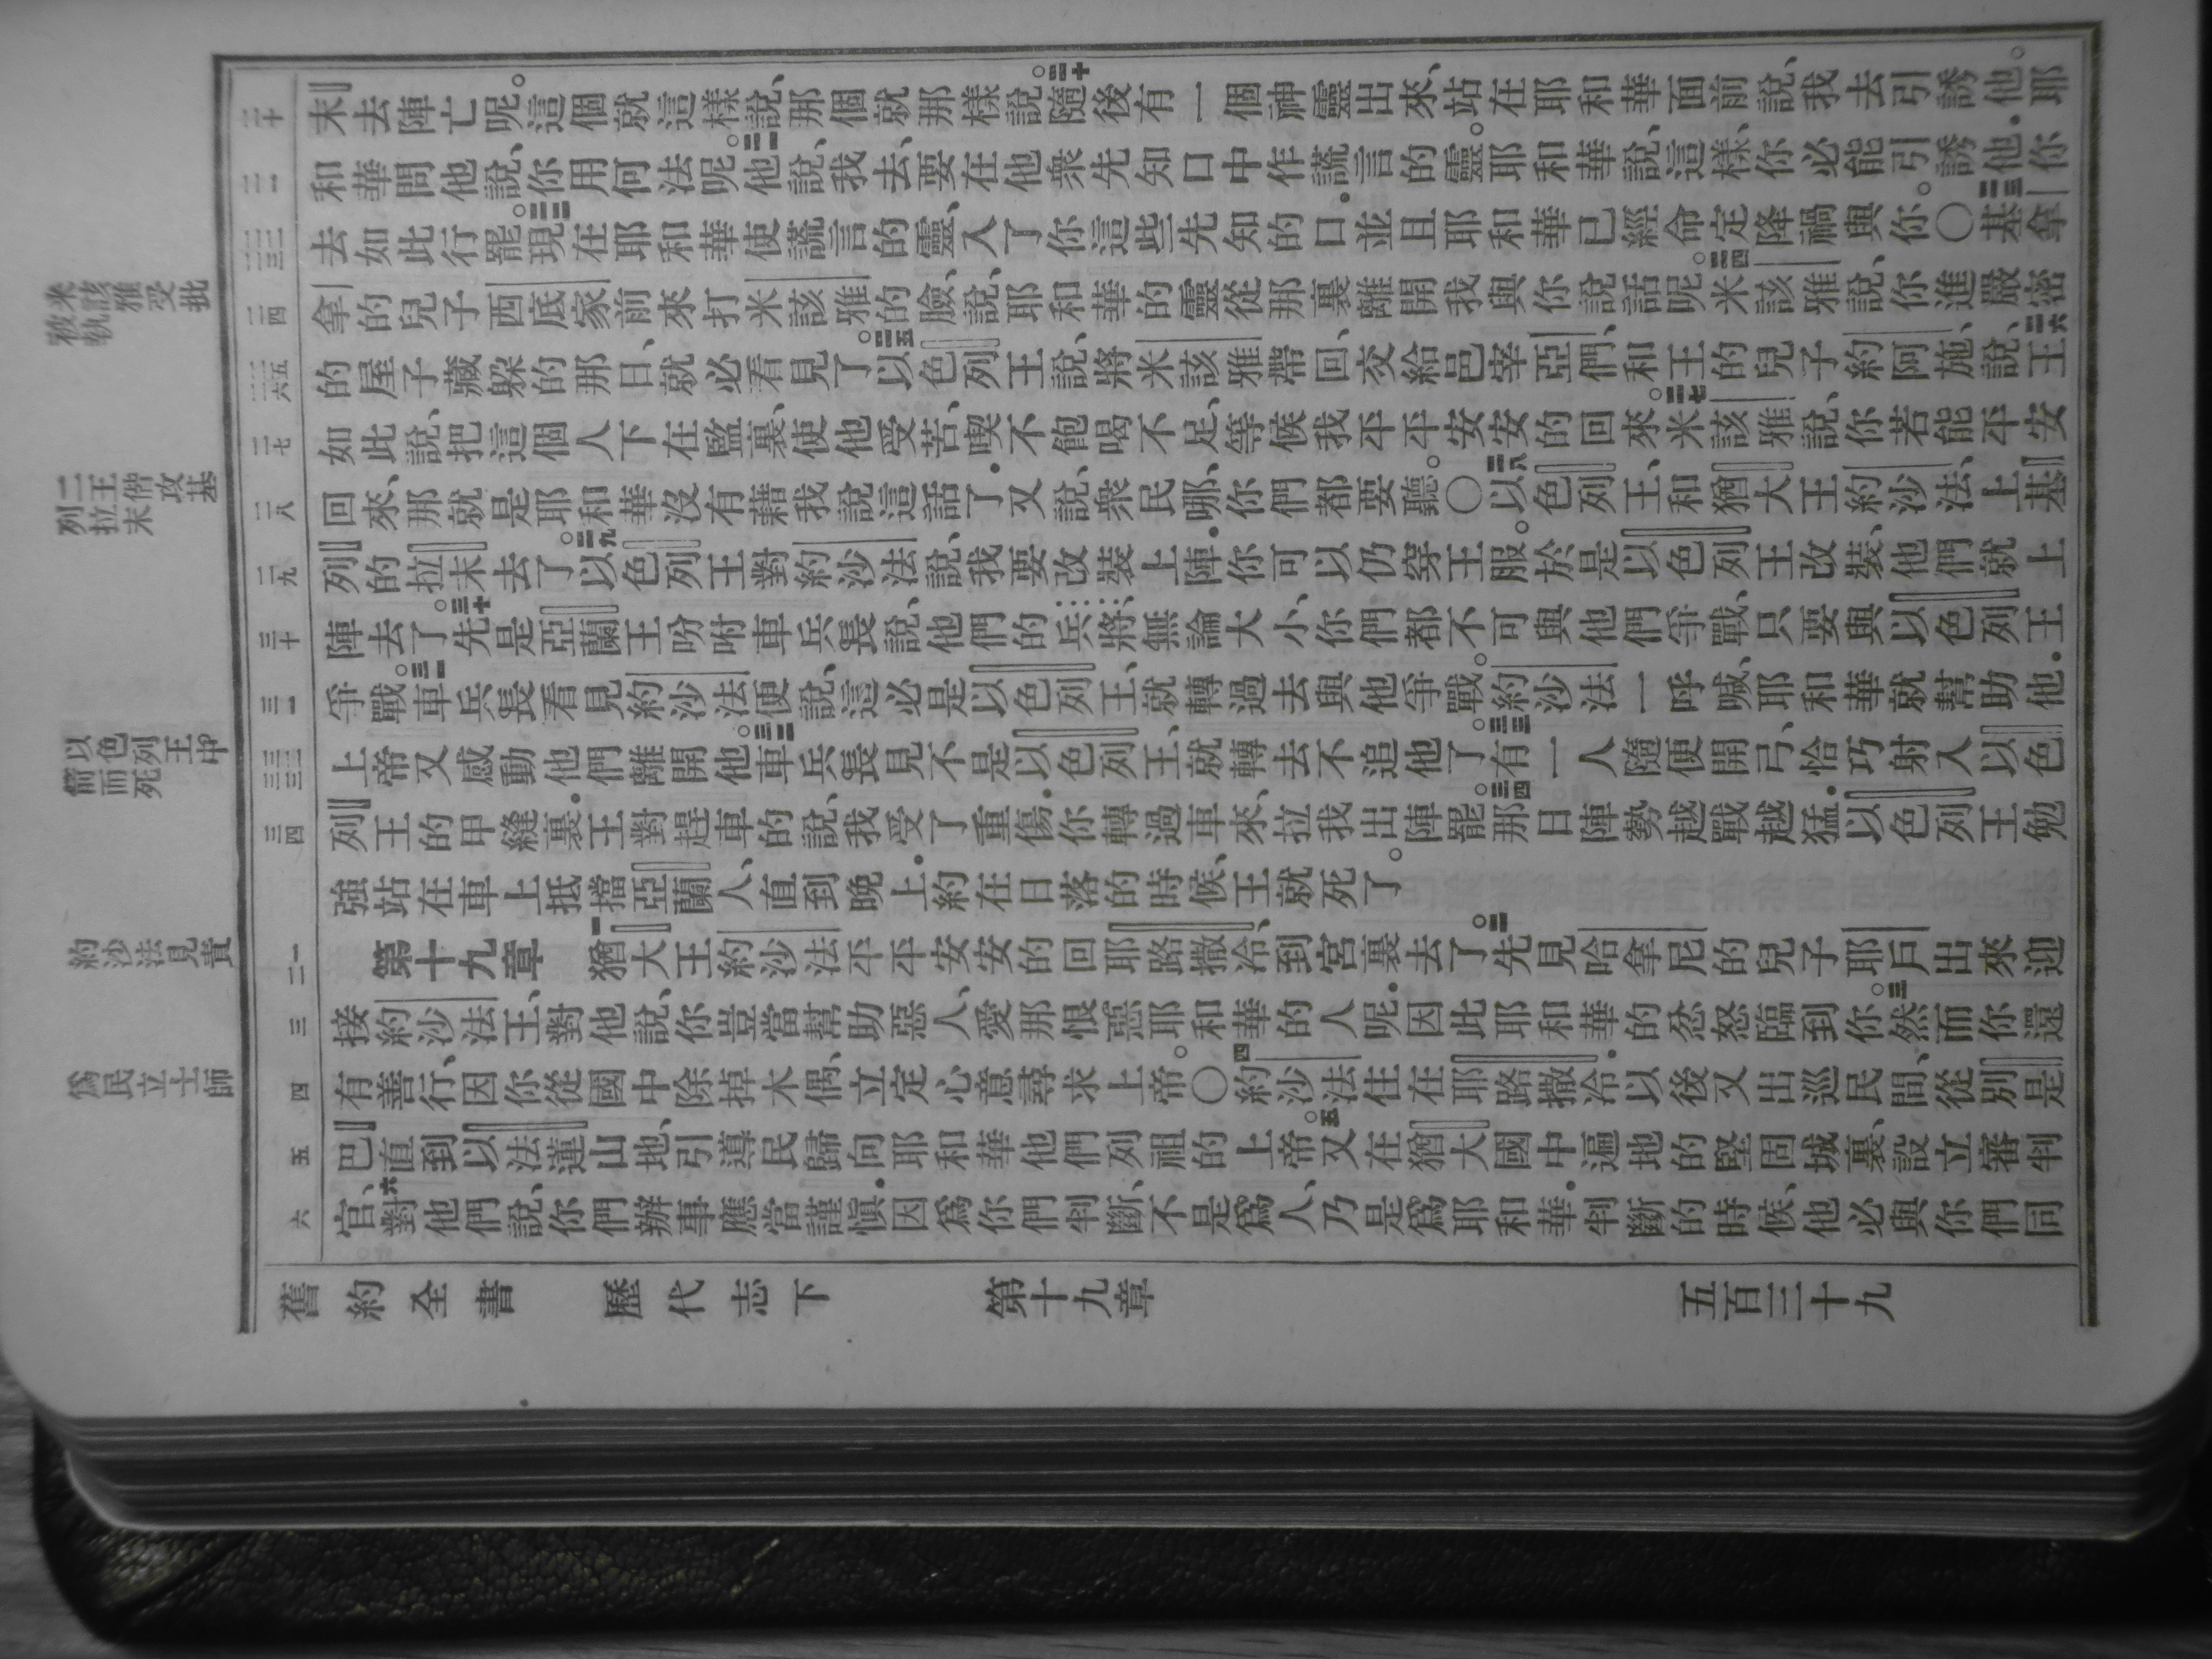 米該雅受批
被執
二王偕攻基
列拉末
以色列王中
箭而死
約沙法見責
爲民立士師
二十
二一
二二
二三
二四
二五
二六
二七
二八
二九
三十
三一
三二
三三
三四
一
二
三
四
五
六
末去陣亡呢。這個就這樣說、那個就那樣說。二十隨後有一個神靈出來、站在耶和華面前說、我去引誘他。耶
和華問他說、你用何法呢。二一他說、我去、要在他衆先知口中作謊言的靈。耶和華說、這樣、你必能引誘他．你
去如此行罷。二二現在耶和華使謊言的靈、入了你這些先知的口．並且耶和華已經命定降禍與你。〇二三基拿
拿的兒子西底家前來打米該雅的臉、說、耶和華的靈從那裏離開我與你說話呢。二四米該雅說、你進嚴密
的屋子藏躱的那日、就必看見了。二五以色列王說、將米該雅帶回、交給邑宰亞們、和王的兒子約阿施、二六說、王
如此說、把這個人下在監裏、使他受苦、喫不飽喝不足、等候我平平安安的回來。二七米該雅說、你若能平安
回來、那就是耶和華沒有藉我說這話了．又說、衆民哪、你們都要聽。〇二八以色列王、和猶大王約沙法、上基
列的拉末去了。二九以色列王對約沙法說、我要改裝上陣．你可以仍穿王服。於是以色列王改裝、他們就上
陣去了。三十先是亞蘭王吩咐車兵長說、他們的兵將、無論大小、你們都不可與他們爭戰、只要與以色列王
爭戰。三一車兵長看見約沙法便說、這必是以色列王、就轉過去與他爭戰。約沙法一呼喊、耶和華就幫助他．
上帝又感動他們離開他。三二車兵長見不是以色列王、就轉去不追他了。三三有一人隨便開弓、恰巧射入以色
列王的甲縫裏．王對趕車的說、我受了重傷．你轉過車來、拉我出陣罷。三四那日陣勢越戰越猛．以色列王勉
強站在車上抵擋亞蘭人、直到晚上．約在日落的時候、王就死了。
第十九章 一猶大王約沙法平平安安的回耶路撒冷、到宮裏去了。二先見哈拿尼的兒子耶戶出來迎
接約沙法王、對他說、你豈當幫助惡人、愛那恨惡耶和華的人呢．因此耶和華的忿怒臨到你。三然而你還
有善行、因你從國中除掉木偶、立定心意尋求上帝。〇四約沙法住在耶路撒冷．以後又出巡民間、從別是
巴直到以法蓮山地、引導民歸向耶和華他們列祖的上帝。五又在猶大國中遍地的堅固城裏、設立審判
官、六對他們說、你們辦事應當謹愼．因爲你們判斷、不是爲人、乃是爲耶和華．判斷的時候、他必與你們同
舊約全書 歷代志下 第十九章 五百三十九